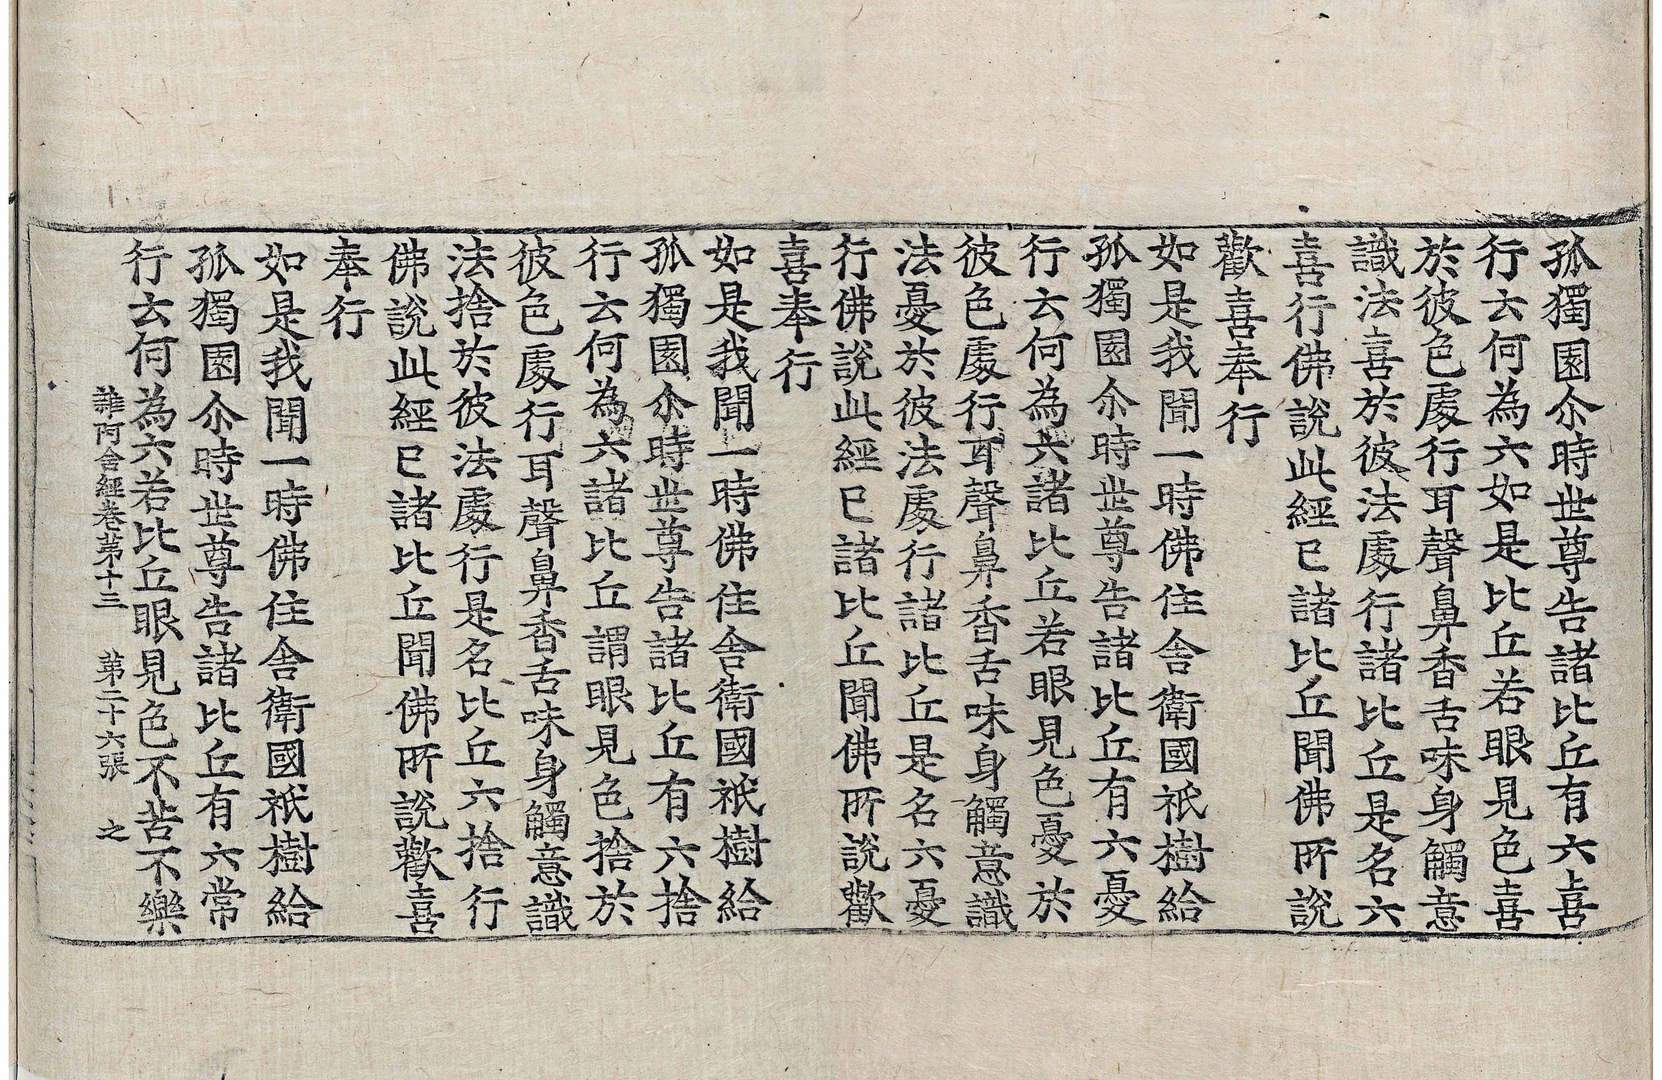 孤獨園尒時世尊告諸比丘有六喜
行云何為六如是比丘若眼見色喜
於彼色處行耳聲鼻香舌味身觸意
識法喜於彼法處行諸比丘是名六
喜行佛說此經已諸比丘聞佛所說
歡喜奉行
如是我聞一時佛住舍衛國祇樹給
孤獨園尒時世尊告諸比丘有六憂
行云何為六諸比丘若眼見色憂於
彼色處行耳聲鼻香舌味身觸意識
法憂於彼法處行諸比丘是名六憂
行佛說此經已諸比丘聞佛所說歡
喜奉行
如是我聞一時佛住舍衛國祇樹給
孤獨園尒時世尊告諸比丘有六捨
行云何為六諸比丘謂眼見色捨於
彼色處行耳聲鼻香舌味身觸意識
法捨於彼法處行是名比丘六捨行
佛說此經已諸比丘聞佛所說歡喜
奉行
如是我聞一時佛住舍衛國祇樹給
孤獨園尒時世尊告諸比丘有六常
行云何為六若比丘眼見色不苦不樂
雜阿含經卷第十三 第二十六張 之